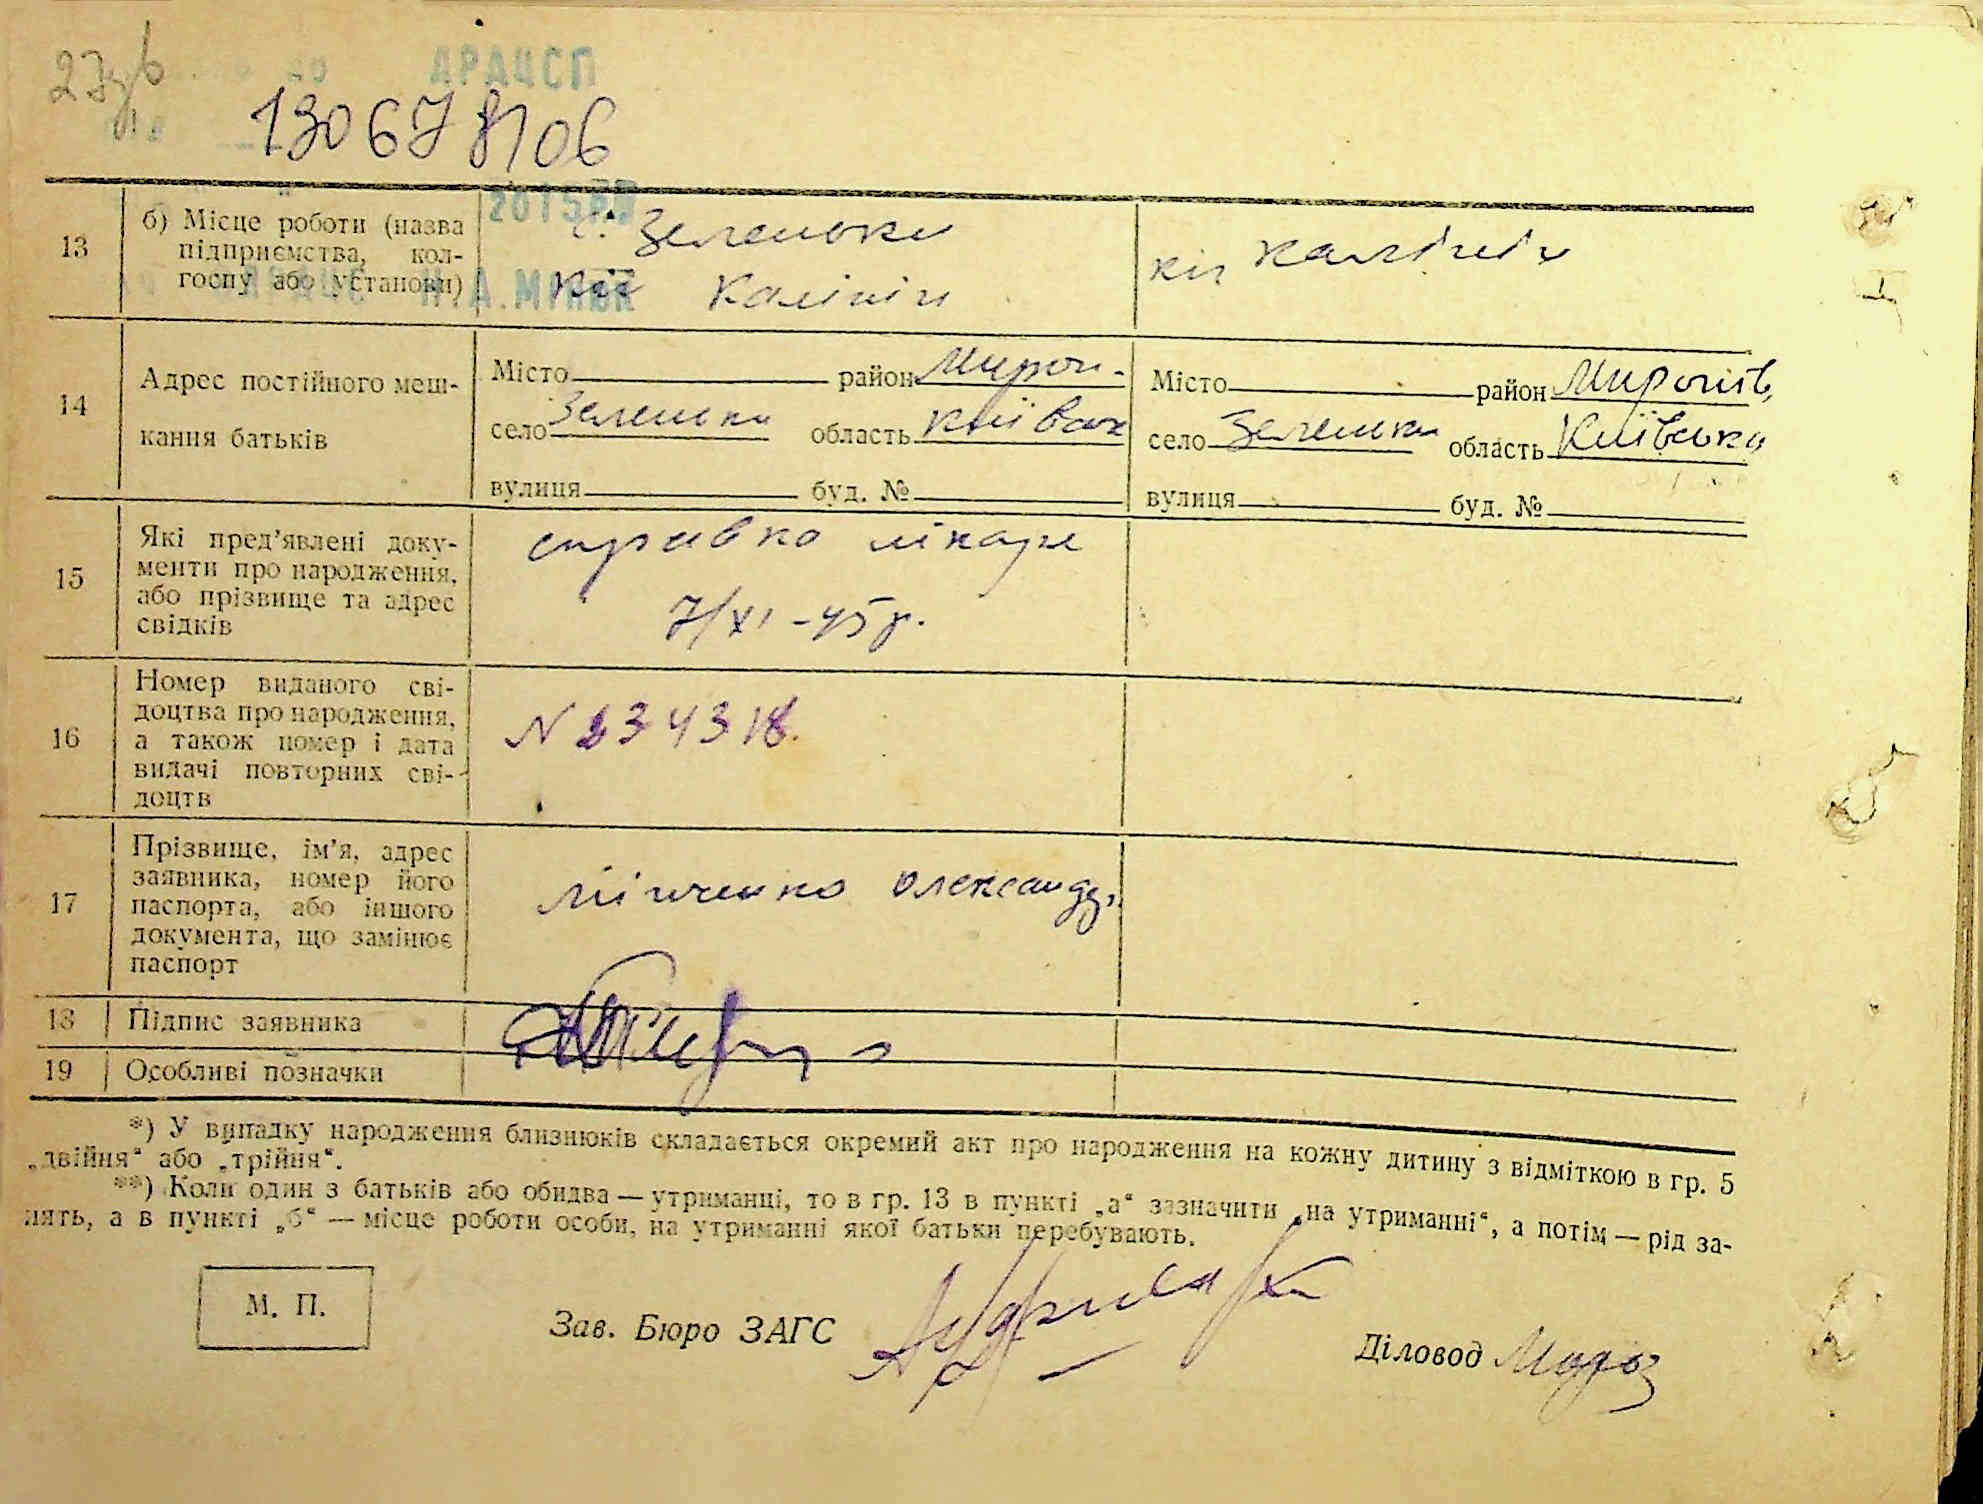 АРАЦСП
130678106
13
б) Місце роботи (назва підприємства, кол-госпу або установи)
с. Зеленьки
Калінін
Калінін
14
Адрес постійного меш-
кання батьків
Місто район Мирон-
село Зеленьки область Київськ
вулиця буд. №
Місто район Миронів,
село Зеленьки область Київська
вулиця буд. №
15
Які пред'явлені доку-
менти про народження,
або прізвище та адрес
свідків
справка лікаря
7/XI-45р.
16
Номер виданого сві-
доцтва про народження,
а також номер і дата
видачі повторних сві-
доцтв
N 234318.
17
Прізвище, ім'я, адрес
заявника, номер його
паспорта, або іншого
документа, що замінює
паспорт
Олександр
18 Підпис заявника
19 Особливі позначки
*) У випадку народження близнюків складається окремий акт про народження на кожну дитину з відміткою в гр. 5
„двійня“ або „трійня“.
**) Коли один з батьків або обидва — утриманці, то в гр. 13 в пункті „а“ зазначити „на утриманні“, а потім — рід за-
нять, а в пункті „б“ — місце роботи особи, на утриманні якої батьки перебувають.
М. П.
Зав. Бюро ЗАГС
Діловод